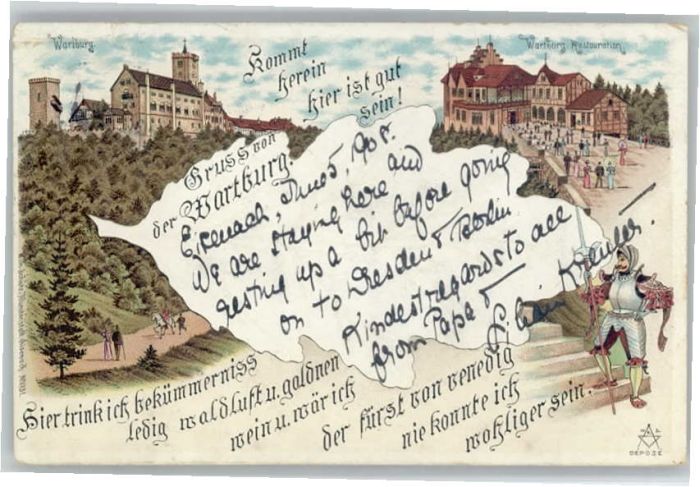 Wartburg.
Wartburg Restauration.
Kommt
herein
hier ist gut
sein!
Gruss von
der Wartburg.
Eisenach, June 5, 908.
We are staying here and
resting up a bit before going
on to Dresden & Berlin
Kindest regards to all
from Papa &
Hier trink ich bekümmerniss
ledig waldluft u. goldnen
wein u. wär ich
der fürst von venedig
nie konnte ich
wohliger sein.
DEPOSE